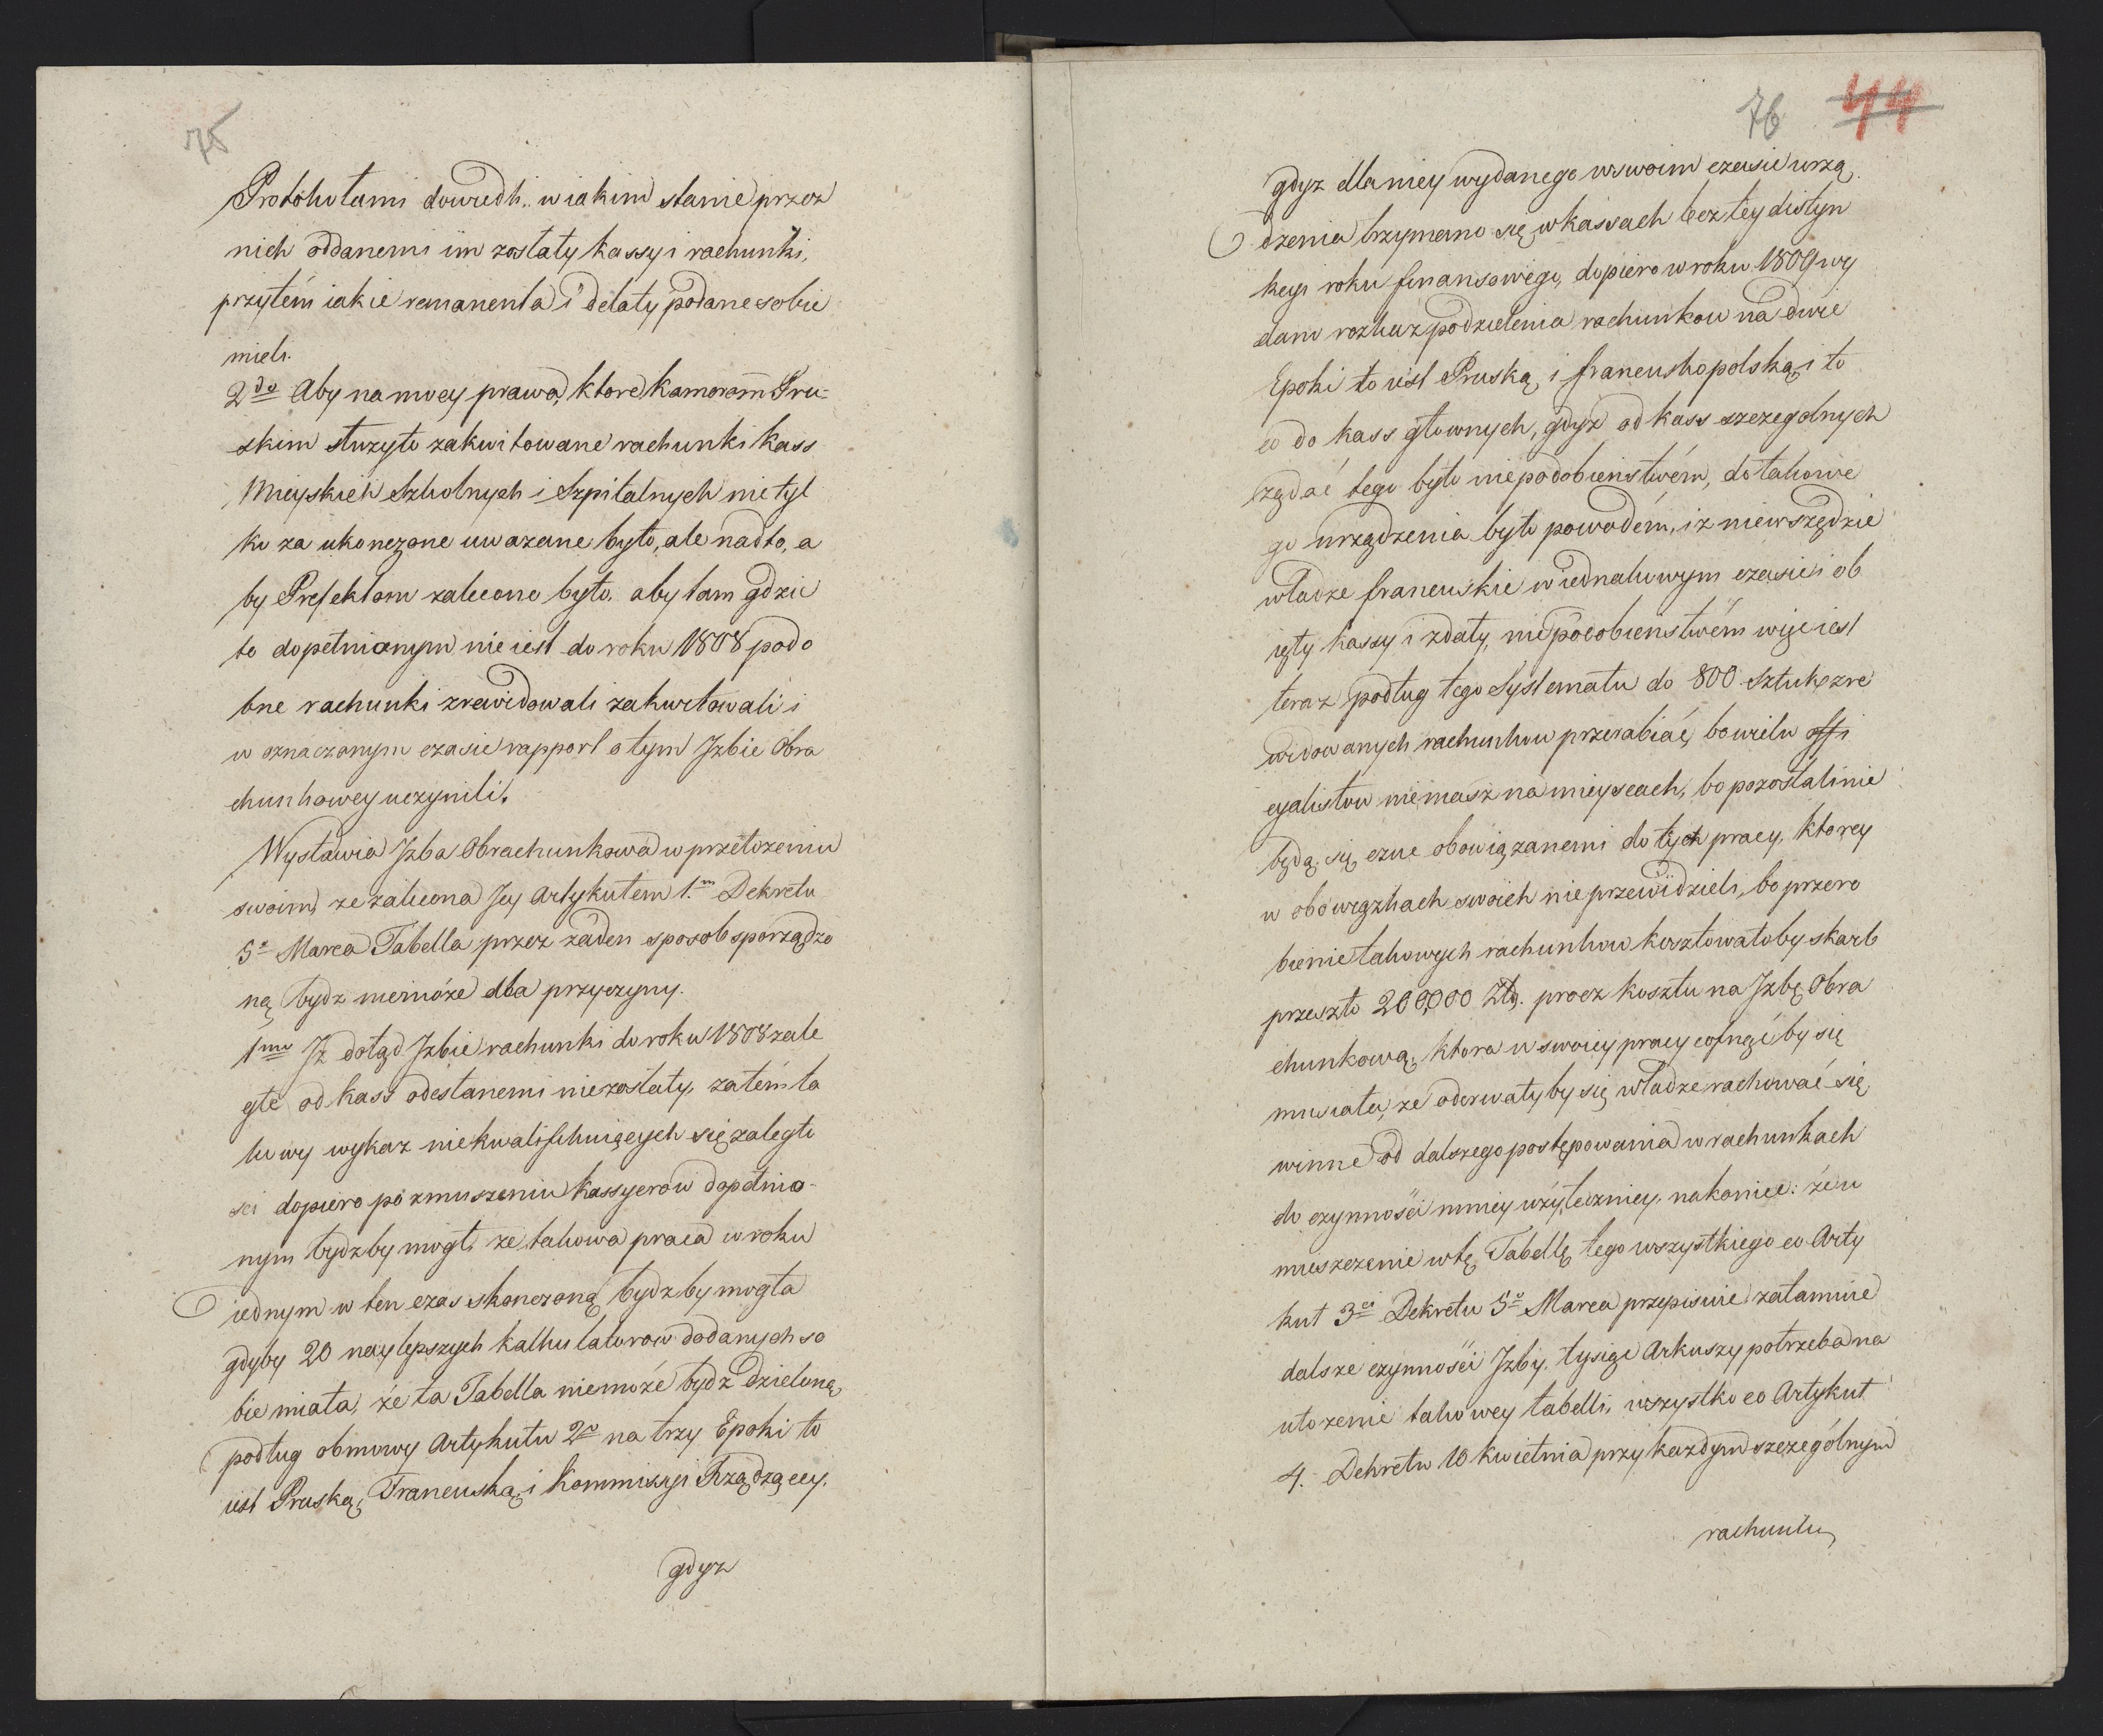 75
Protokułami dowiedli w iakim stanie przez
nich oddanemi im zostały kassy i rachunki,
przytem iakie remanenta i delaty podane sobie
mieli.
2do Aby na mocy prawa, ktore Kamorom Pru-
skim służyło zakwitowane rachunki kass
Mieyskich Szkolnych i Szpitalnych nietyl
ko za ukonczone uwazane było, ale nadto, a
by Prefektom zalecono było, aby tam gdzie
to dopełnionym nie iest do roku 1808 podo
bne rachunki zrewidowali zakwitowali i
w oznaczonym czasie rapport o tym Jzbie Obra
chunkowey uczynili.
Wystawia Jzba Obrachunkowa w przełozeniu
swoim, ze zalecona Jey Artykułem 1.m Dekretu
5o Marca Tabella przez zaden sposob sporządzo
ną bydz niemoze dla przyczyny.
1mo Jz dotąd Jzbie rachunki do roku 1808 zale
głe od kass odesłanemi niezostały, zatem ta
kowy wykaz niekwalifikuiących się zaległo
sci dopiero po zmuszeniu Kassyerow dopełnio-
nym bydzby mogł, ze takowa praca w roku
iednym w ten czas skonczoną bydzby mogła
gdyby 20 naylepszych kalkulatorow dodanych so
bie miała, że ta Tabella niemoże bydz dzieloną
podług osnowy Artykułu 2o na trzy Epoki to
iest Pruską, Francuską, i Kommissyi Rządzącey.
gdyz
76 44
gdyz dla niey wydanego w swoim czasie urzą
dzenia trzymano się w kassach bez tey distyn
kcyi roku finansowego, dopiero w roku 1809 wy
dano rozkaz podzielenia rachunkow na dwie
Epoki to iest Pruską, i francuskopolską, i to
co do kass głownych, gdyz od kass szczegolnych
rządać tego było niepodobienstwem, do takowe
go urządzenia było powodem, iz niewszędzie
władze francuskie w iednakowym czasie i ob
ięły kassy i zdały, niepodobienstwem więc iest
teraz podług tego Systematu do 800 Sztuk zre
widowanych rachunkow przerabiać, bo wielu offi
cyalistow niemasz na mieyscach, bo pozostali nie
będą się czuć obowiązanemi do tych pracy, ktorey
w obowiązkach swoich nieprzewidzieli, bo przero
bienie takowych rachunkow kosztowałoby skarb
przeszło 200,000 Złł. procz kosztu na Jzbę Obra
chunkową, ktora w swoiey pracy cofnąćby się
musiała, ze oderwałyby się władze rachować się
winne od dalszego postępowania w rachunkach
do czynności mniey użyteczniey. nakoniec: że u
mieszczenie w tę Tabellę tego wszystkiego co Arty
kuł 3ci Dekretu 5o Marca przepisuie zatamuie
dalsze czynności Jzby. tysiąc Arkuszy potrzeba na
ułozenie takowey tabelli, wszystko co Artykuł
4. Dekretu 10 Kwietnia przy kazdym szczególnym
rachunku